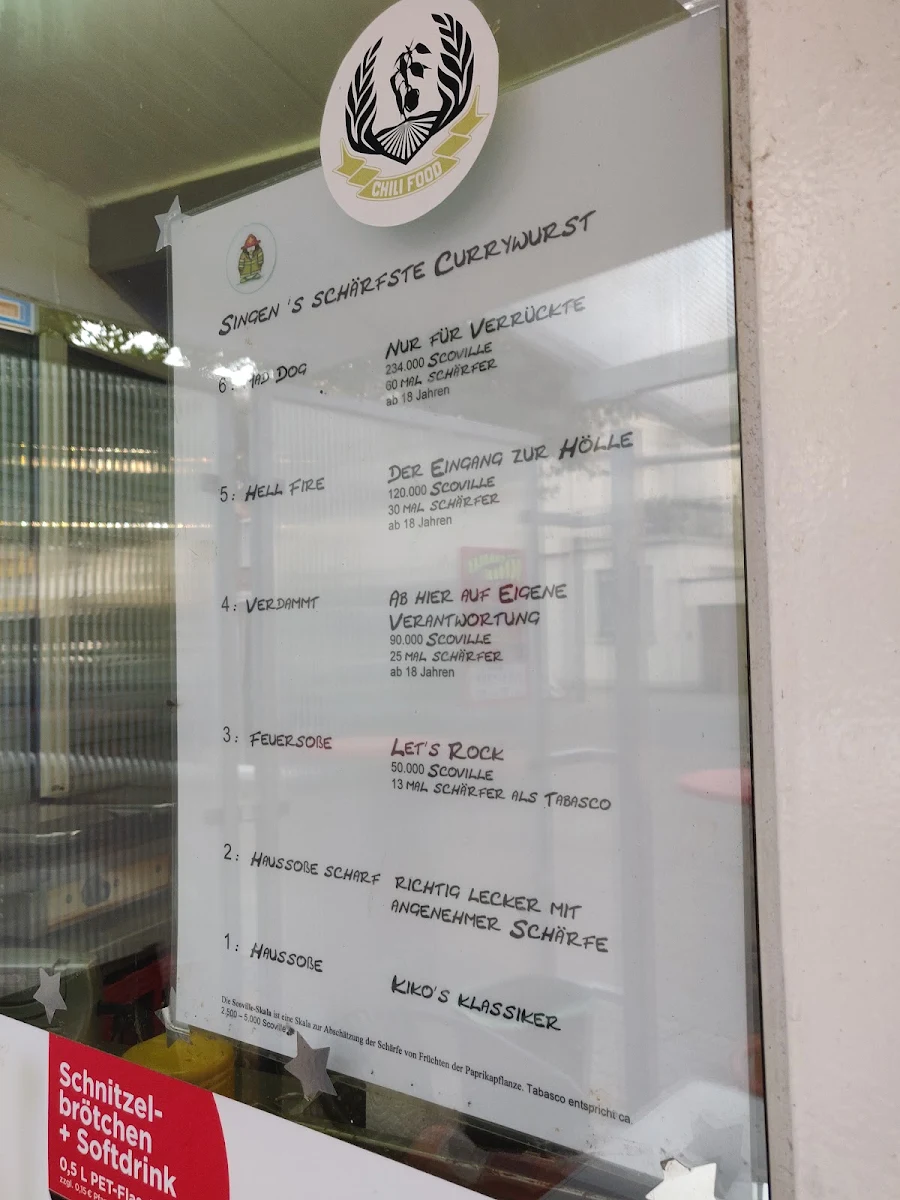 CHILI FOOD
SINGEN 'S SCHÄRFSTE CURRYWURST
6: MAD DOG
NUR FÜR VERRÜCKTE
234.000 SCOVILLE
60 MAL SCHÄRFER
ab 18 Jahren
5: HELL FIRE
DER EINGANG ZUR HÖLLE
120.000 SCOVILLE
30 MAL SCHÄRFER
ab 18 Jahren
4: VERDAMMT
AB HIER AUF EIGENE
VERANTWORTUNG
90.000 SCOVILLE
25 MAL SCHÄRFER
ab 18 Jahren
3: FEUERSOßE
LET'S ROCK
50.000 SCOVILLE
13 MAL SCHÄRFER ALS TABASCO
2: HAUSSOßE SCHARF
RICHTIG LECKER MIT
ANGENEHMER SCHÄRFE
1: HAUSSOßE
KIKO'S KLASSIKER
Die Scoville-Skala ist eine Skala zur Abschätzung der Schärfe von Früchten der Paprikapflanze. Tabasco entspricht ca.
2.500 – 5.000 Scoville
Schnitzel-
brötchen
+ Softdrink
0,5 L PET-Fla
zzgl. 0,15 €